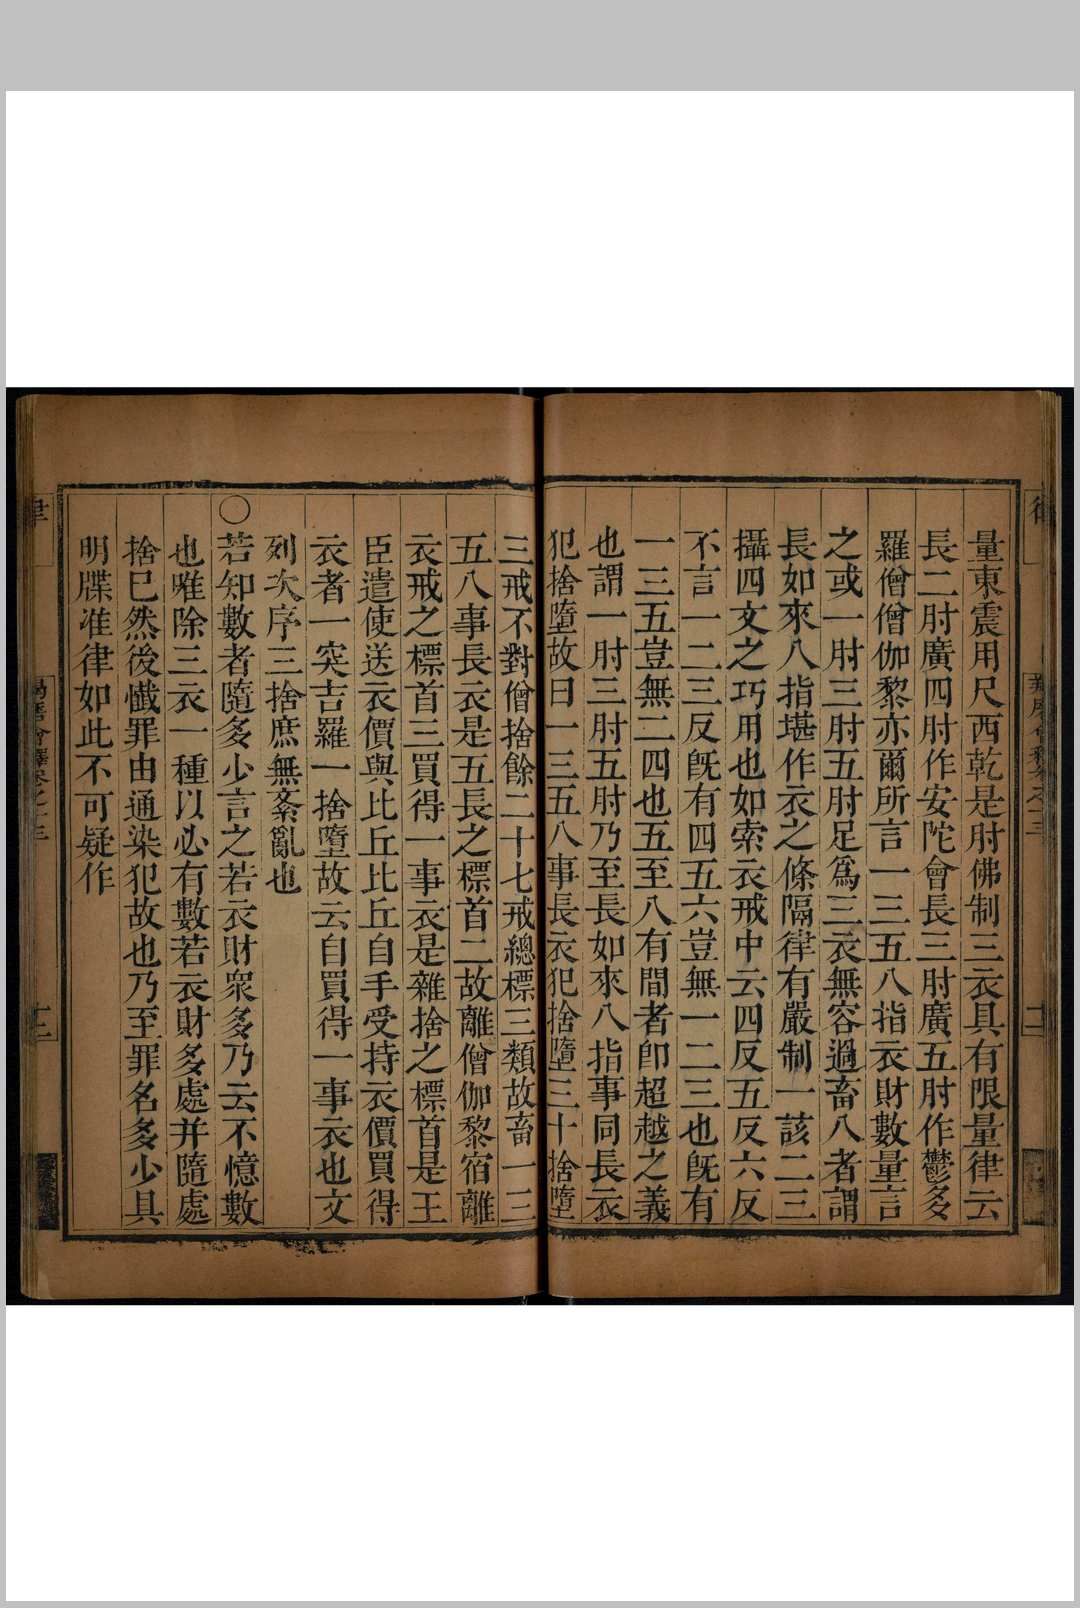 量東震用尺西乾是肘佛制三衣具有限量律云
長二肘廣四肘作安陀會長三肘廣五肘作鬱多
羅僧僧伽黎亦爾所言一三五八指衣財數量言
之或一肘三肘五肘足爲三衣無容過畜八者謂
長如來八指堪作衣之條隔律有嚴制一該二三
攝四文之巧用也如索衣戒中云四反五反六反
不言一二三反旣有四五六豈無一二三也旣有
一三五豈無二四也五至八有間者卽超越之義
也謂一肘三肘五肘乃至長如來八指事同長衣
犯捨墮故曰一三五八事長衣犯捨墮三十捨墮
三戒不對僧捨餘二十七戒總標三類故畜一三
五八事長衣是五長之標首二故離僧伽黎宿離
衣戒之標首三買得一事衣是雜捨之標首是王
臣遣使送衣價與比丘比丘自手受持衣價買得
衣者一突吉羅一捨墮故云自買得一事衣也文
列次序三捨庶無紊亂也
〇若知數者隨多少言之若衣財衆多乃云不憶數
也唯除三衣一種以必有數若衣財多處并隨處
捨已然後懺罪由通染犯故也乃至罪名多少具
明牒准律如此不可疑作
律
羯磨會釋卷之十三
十三